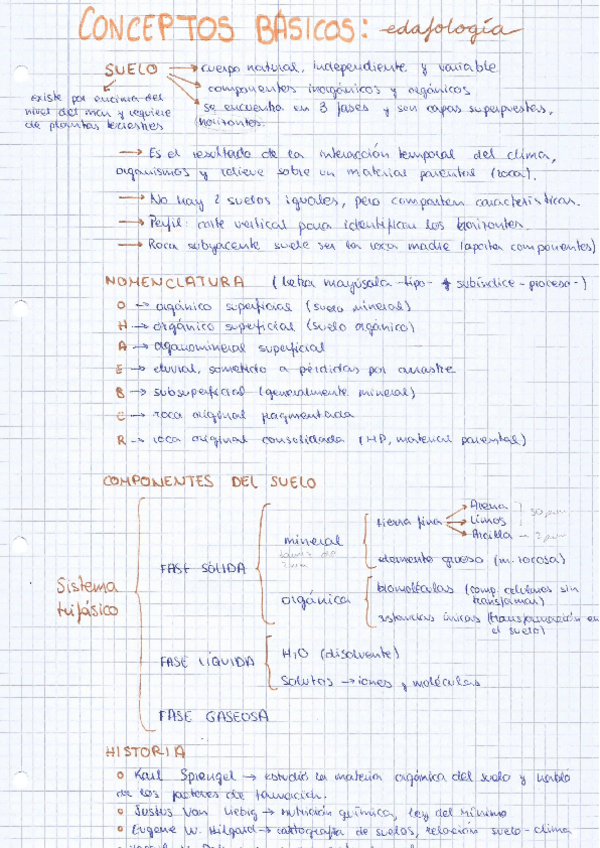 CONCEPTOS BÁSICOS: edafología
SUELO → cuerpo natural, independiente y variable
→ componentes inorgánicos y orgánicos
→ se encuentra en 3 fases y son capas superpuestas,
horizontes.
existe por encima del
nivel del mar y requiere
de plantas terrestres
→ Es el resultado de la interacción temporal del clima,
organismos y relieve sobre un material parental (roca).
→ No hay 2 suelos iguales, pero comparten características.
→ Perfil: corte vertical para identificar los horizontes.
→ Roca subyacente suele ser la roca madre (aporta componentes)
NOMENCLATURA (letra mayúscula -tipo- + subíndice -proceso-)
O → orgánico superficial (suelo mineral)
H → orgánico superficial (suelo orgánico)
A → organomineral superficial
E → eluvial, sometido a pérdidas por arrastre
B → subsuperficial (generalmente mineral)
C → roca original fragmentada
R → roca original consolidada (HP, material parental)
COMPONENTES DEL SUELO
Sistema
trifásico
FASE SÓLIDA
mineral
tierra fina → Arena
→ Limos
→ Arcilla
50 µm
2 µm
elemento grueso (m. rocosa)
orgánica
biomoléculas (comp. celulares sin
transformar)
sustancias únicas (transformación en
el suelo)
FASE LÍQUIDA
H₂O (disolvente)
solutos → iones y moléculas
FASE GASEOSA
HISTORIA
o Karl Sprengel → estudió la materia orgánica del suelo y habló
de los factores de formación.
o Justus Von Liebig → nutrición química, ley del mínimo
o Eugene W. Hilgard → cartografía de suelos, relación suelo-clima